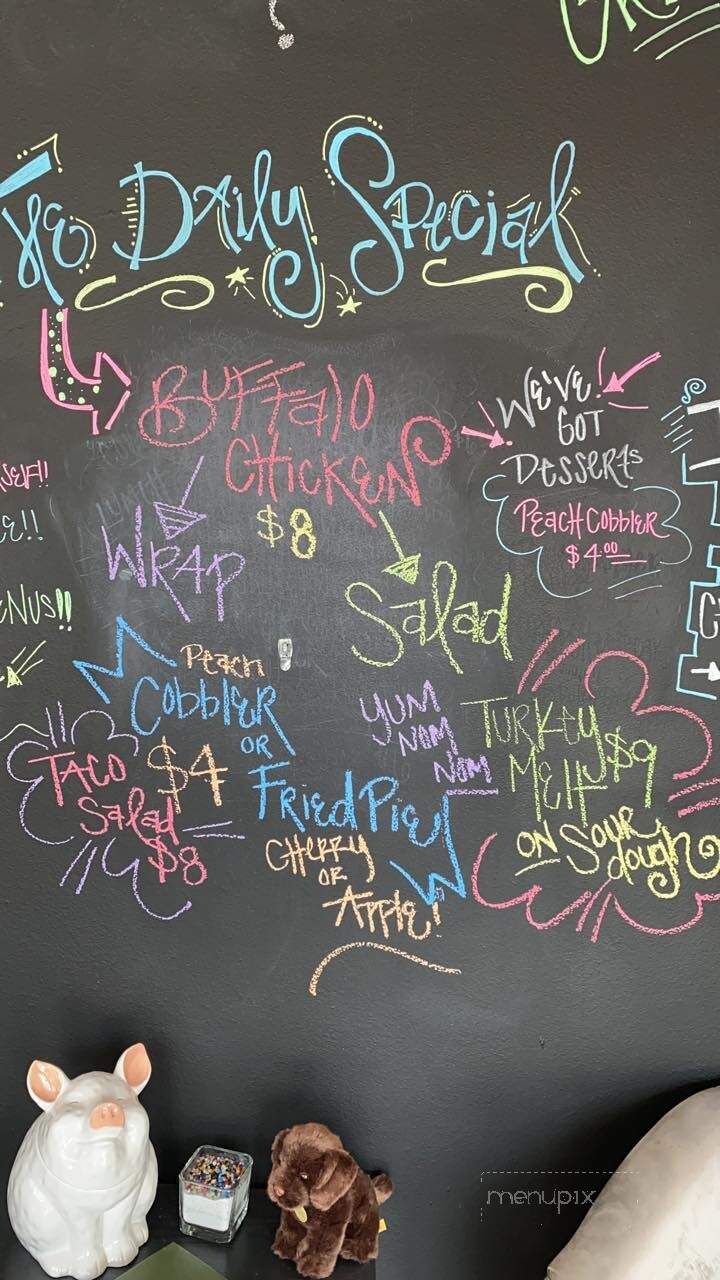 The Daily Special
Buffalo
Chicken
$8
Wrap
Salad
We've
Got
Desserts
Peach Cobbler
$4.00
Peach
Cobbler
or
$4
Fried Pies
Cherry
or
Apple!
Yum
Nom
Nom
Taco
Salad
$8
Turkey
Melt $9
on Sour
dough
menupix